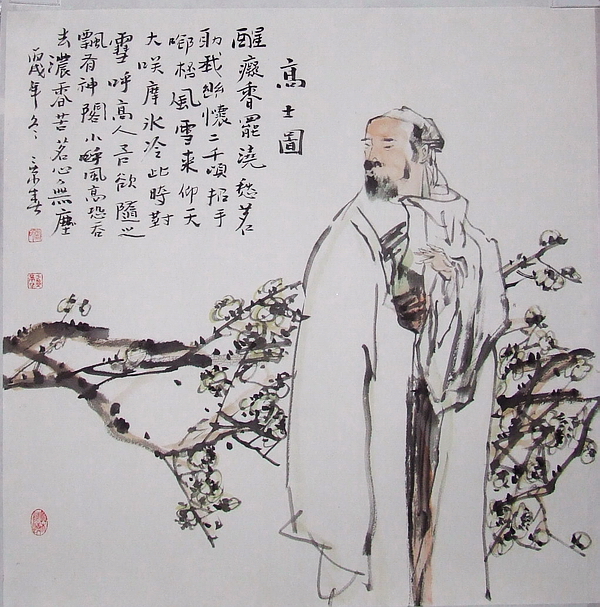 高士圖
醒癡香罷澆愁茗
助我幽懷二千頃招手
梧風雪來仰天
大咲摩冷此時對
雪呼高人吾欲隨之
飄有神閣小風高恐吞
去濃香苦茗心無塵
丙戌年冬